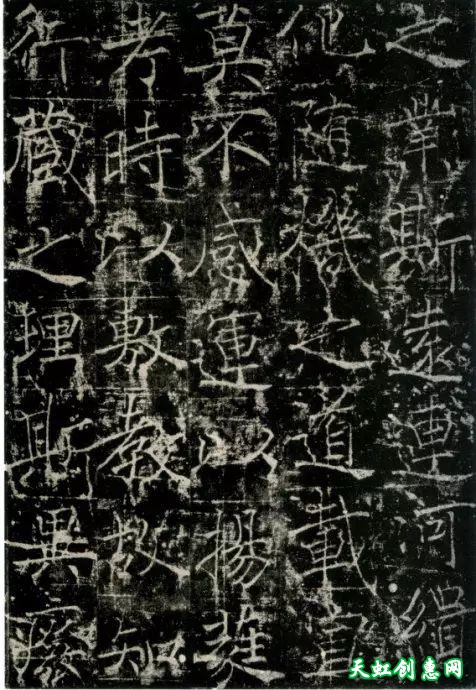 之業斯遠連河緝
化隨機之道載宣
莫不感運以揚蕤
考時以敷教故知
行藏之理斯異廢
天虹创惠网